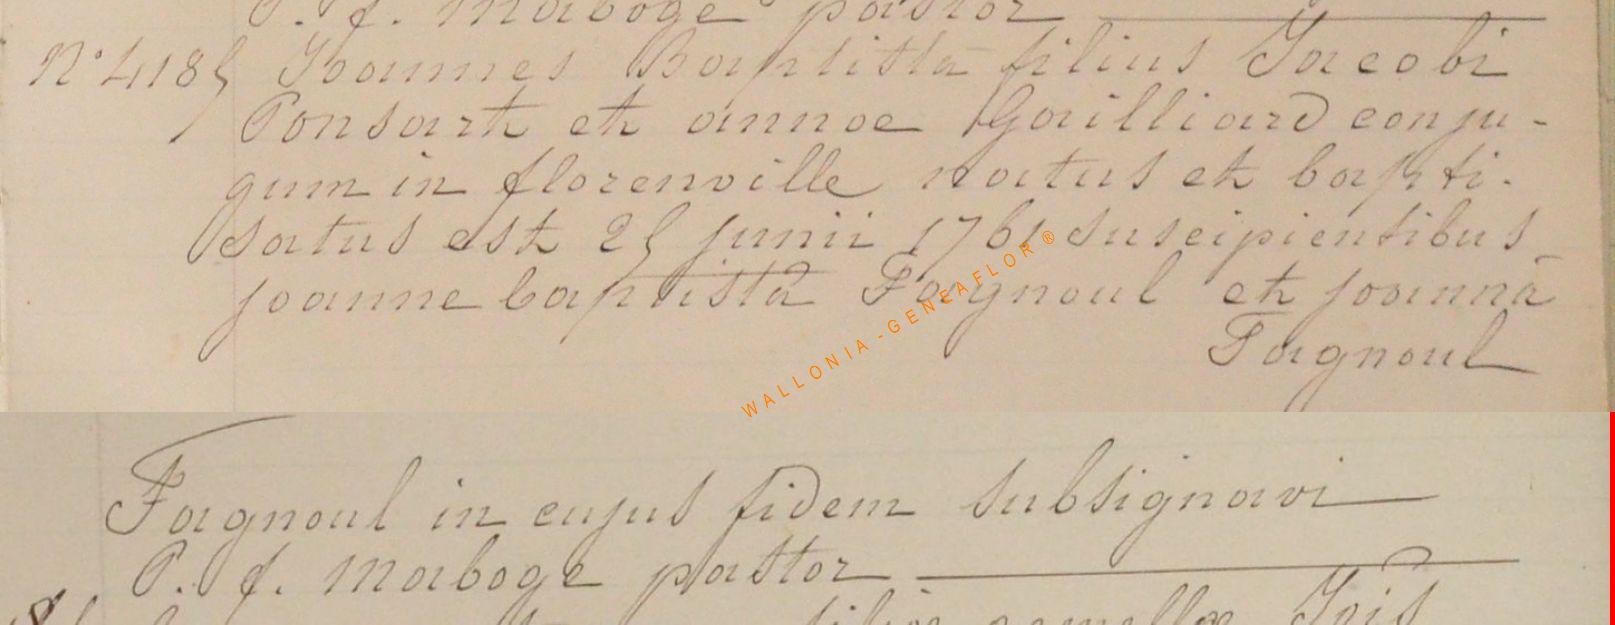 P. f. Maboge pastor
N° 4185 Joannes Baptista filius Jacobi
Ponsart et annae Gailliard conju-
gum in florenville natus et bapti-
satus est 25 junii 1761 suscipientibus
joanne baptistâ Fagnoul et joannâ
Fagnoul
WALLONIA-GENEAFLOR®
Fagnoul in cujus fidem subsignavi
P. f. Maboge pastor
filiae gemellae Jois